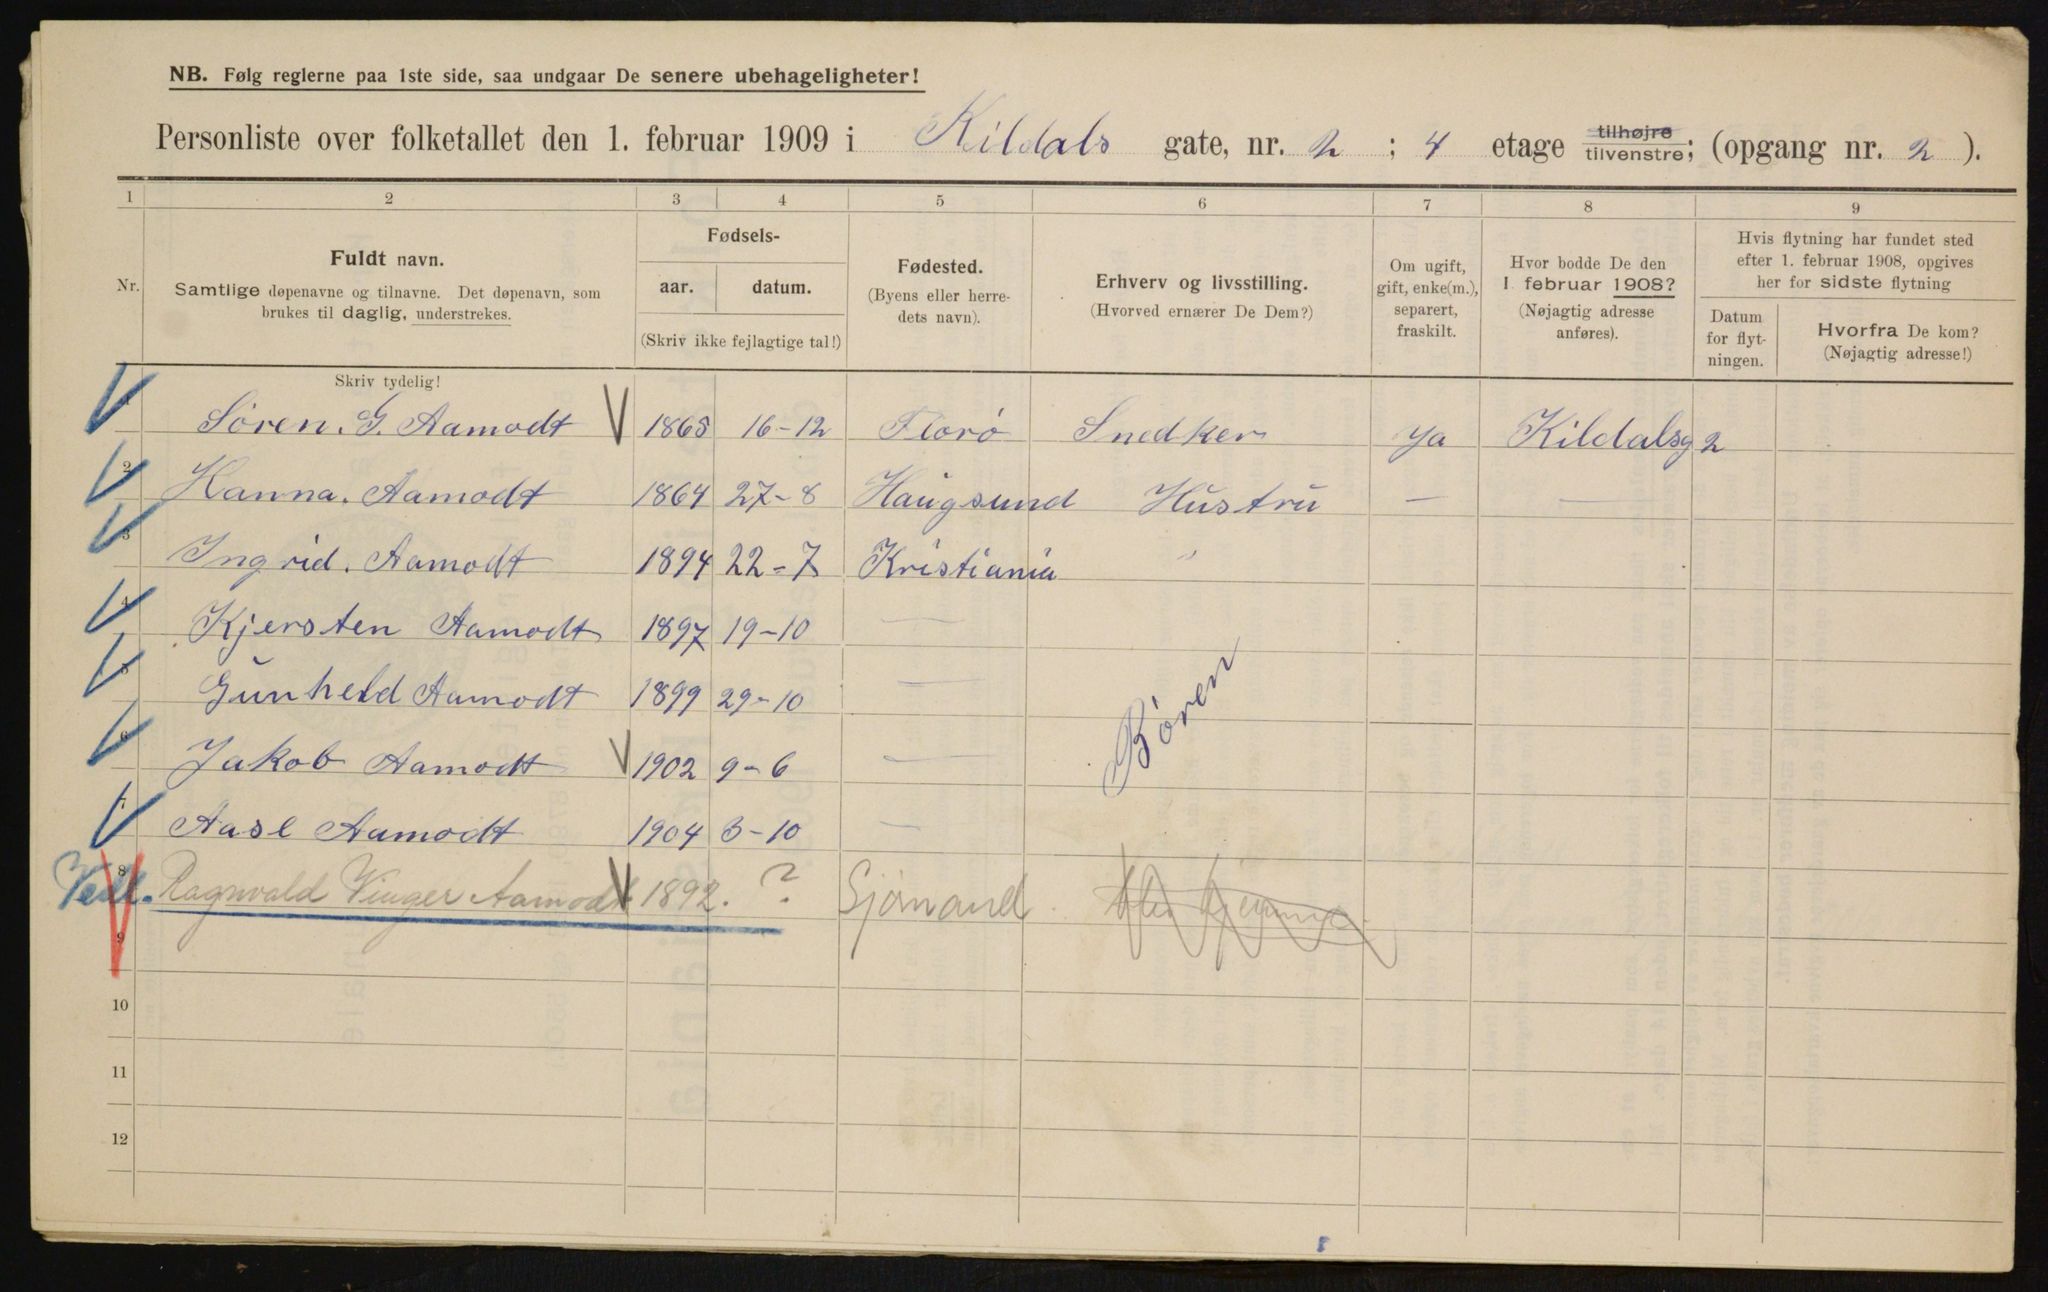 NB. Følg reglerne paa 1ste side, saa undgaar De senere ubehageligheter!
Personliste over folketallet den 1. februar 1909 i Kildals gate, nr. 2 ; 4 etage tilhøjre tilvenstre; (opgang nr. 2 ).
1 2 3 4 5 6 7 8 9
Nr.
Fuldt navn.
Samtlige døpenavne og tilnavne. Det døpenavn, som
brukes til daglig, understrekes.
Skriv tydelig!
Fødsels-
aar. datum.
(Skriv ikke fejlagtige tal!)
Fødested.
(Byens eller herre-
dets navn).
Erhverv og livsstilling.
(Hvorved ernærer De Dem?)
Om ugift,
gift, enke(m.),
separert,
fraskilt.
Hvor bodde De den
1. februar 1908?
(Nøjagtig adresse
anføres).
Hvis flytning har fundet sted
efter 1. februar 1908, opgives
her for sidste flytning
Datum
for flyt-
ningen.
Hvorfra De kom?
(Nøjagtig adresse!)
1 Sören. G. Aamodt 1865 16-12 Florö Snedker Ja Kildalsg 2
2 Hanna. Aamodt 1864 27-8 Haugsund Hustru — —
3 Ingrid. Aamodt 1894 22-7 Kristiania "
4 Kjersten Aamodt 1897 19-10 —
5 Gunheld Aamodt 1899 29-10 —
Bören
6 Jakob Aamodt 1902 9-6 —
7 Aase Aamodt 1904 3-10 —
8 Ragnvald Vinger Aamodt 1892. ? Sjömand
9
10
11
12